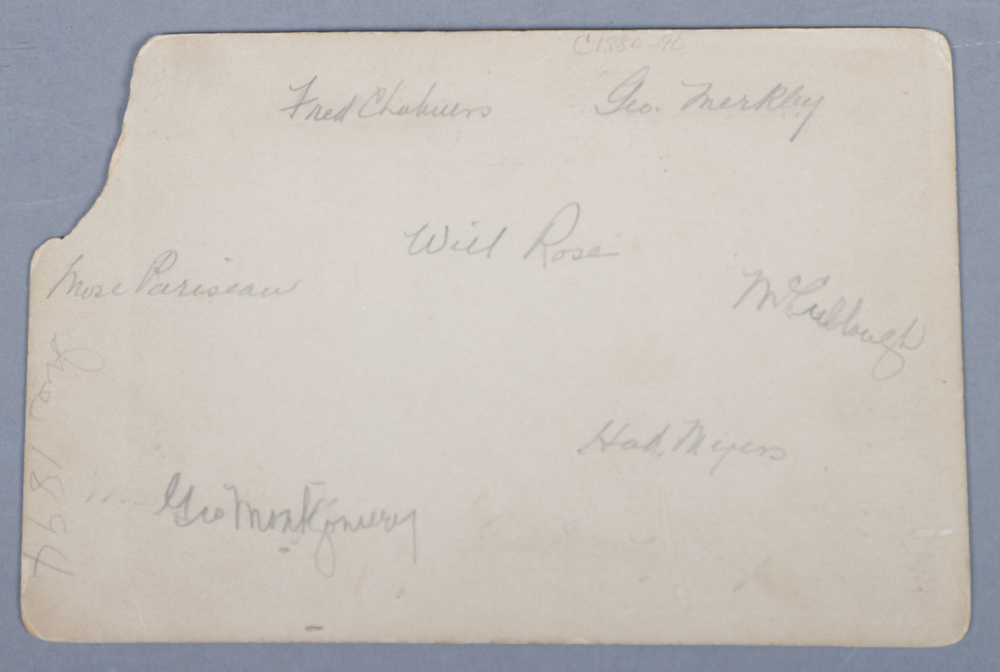 C1880-90
Fred Chalmers
Geo. Merkley
Will Rose
Mose Pariseau
McCullough
Had. Meyers
Geo Montgomery
1894